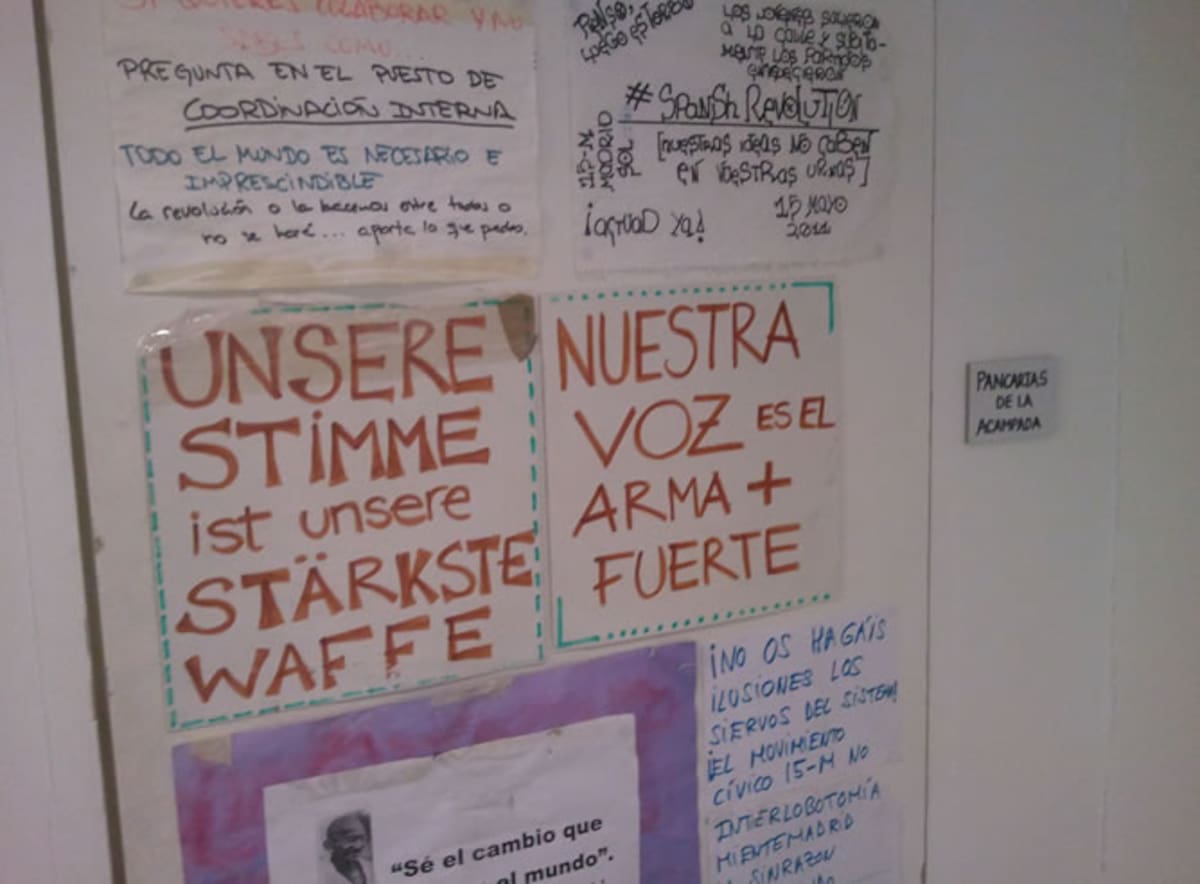 SI QUIERES COLABORAR Y NO
SABES COMO...
PREGUNTA EN EL PUESTO DE
COORDINACIÓN INTERNA
TODO EL MUNDO ES NECESARIO E
IMPRESCINDIBLE
La revolución o la hacemos entre todos o
no se hará... aporta lo que puedas.
PIENSO,
LUEGO ESTORBO
LOS JÓVENES SALIERON
A LA CALLE Y SÚBITA-
MENTE LOS PARTIDOS
ENVEJECIERON
# SPANISH REVOLUTION
15-M
MADRID
SOL
[NUESTRAS IDEAS NO CABEN
EN VUESTRAS URNAS]
¡IGUALDAD YA!
15 MAYO
2011
UNSERE
STIMME
ist unsere
STÄRKSTE
WAFFE
NUESTRA
VOZ ES EL
ARMA +
FUERTE
PANCARTAS
DE LA
ACAMPADA
¡NO OS HAGÁIS
ILUSIONES LOS
SIERVOS DEL SISTEMA!
¡EL MOVIMIENTO
CÍVICO 15-M NO
INTERLOBOTOMÍA
MIENTEMADRID
SINRAZON
“Sé el cambio que
el mundo”.